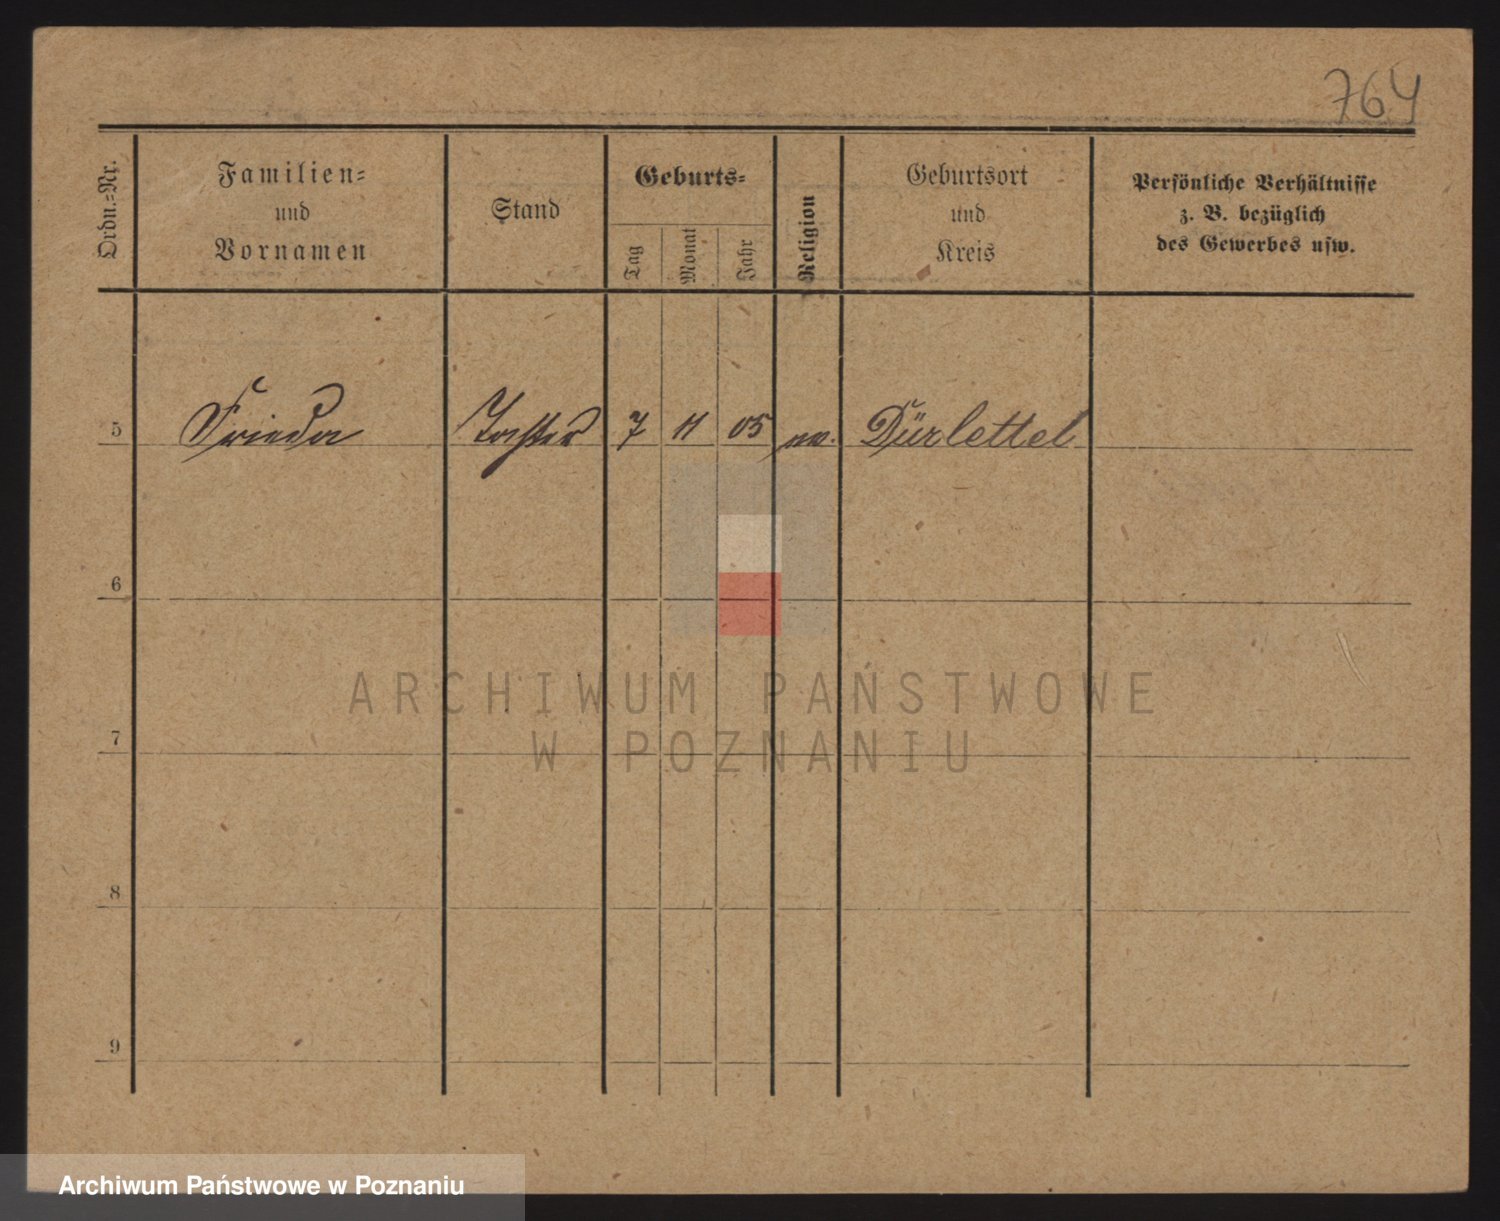 764
Ordn.-Nr.
Familien-
und
Vornamen
Stand
Geburts-
Tag
Monat
Jahr
Religion
Geburtsort
und
Kreis
Persönliche Verhältnisse
z. B. bezüglich
des Gewerbes usw.
5 Frieda Tochter 7 11 05 ev. Dürlettel
6
7
8
9
ARCHIWUM PAŃSTWOWE
W POZNANIU
Archiwum Państwowe w Poznaniu